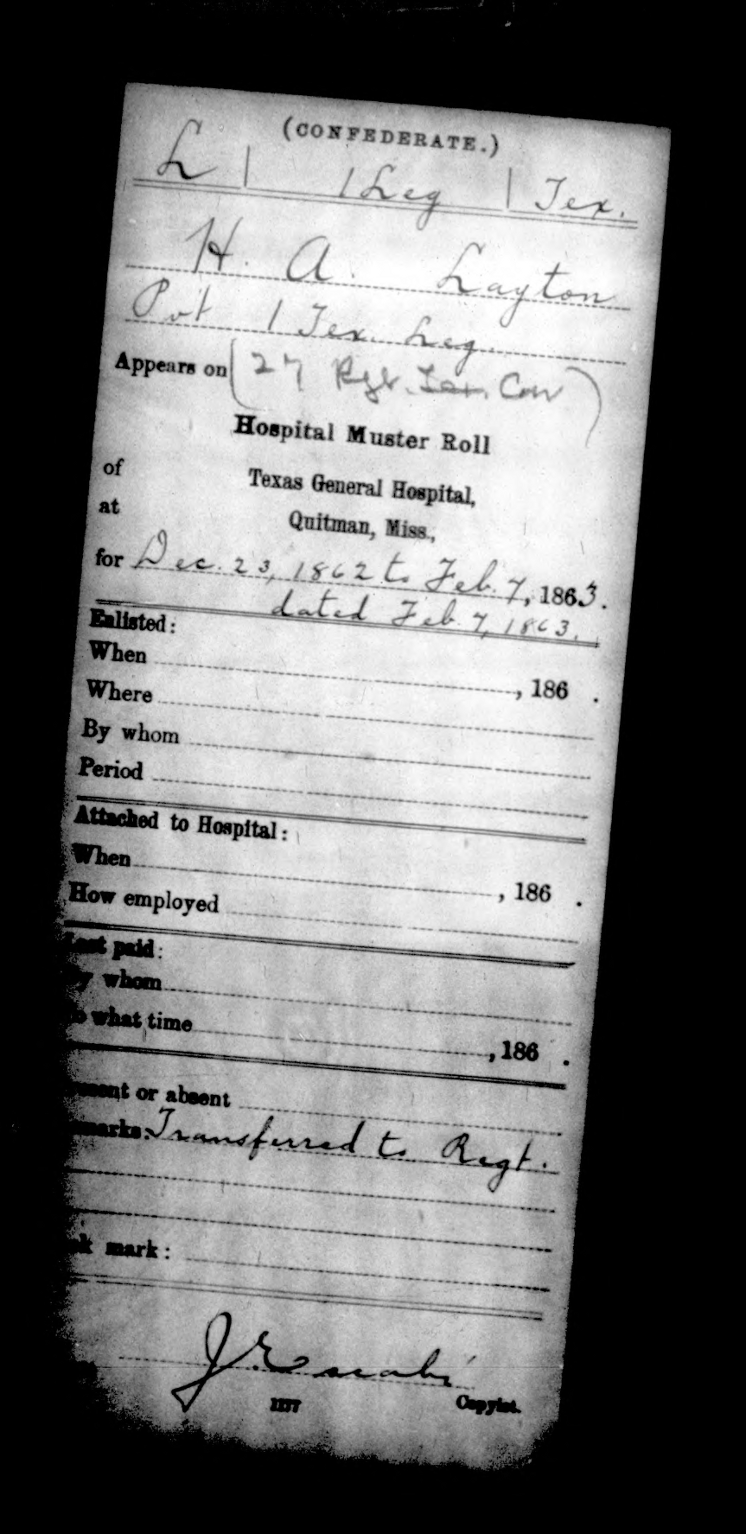 (CONFEDERATE.)
L | 1 Leg | Tex.
H. A. Layton
Pvt 1 Tex. Leg.
Appears on (27 Regt. Tex. Cav)
Hospital Muster Roll
of Texas General Hospital,
at Quitman, Miss.,
for Dec. 23, 1862 to Feb. 7, 1863.
dated Feb. 7, 1863.
Enlisted:
When , 186 .
Where
By whom
Period
Attached to Hospital:
When , 186 .
How employed
Last paid:
By whom
To what time , 186 .
Present or absent
Remarks: Transferred to Regt.
Book mark:
Copyist.